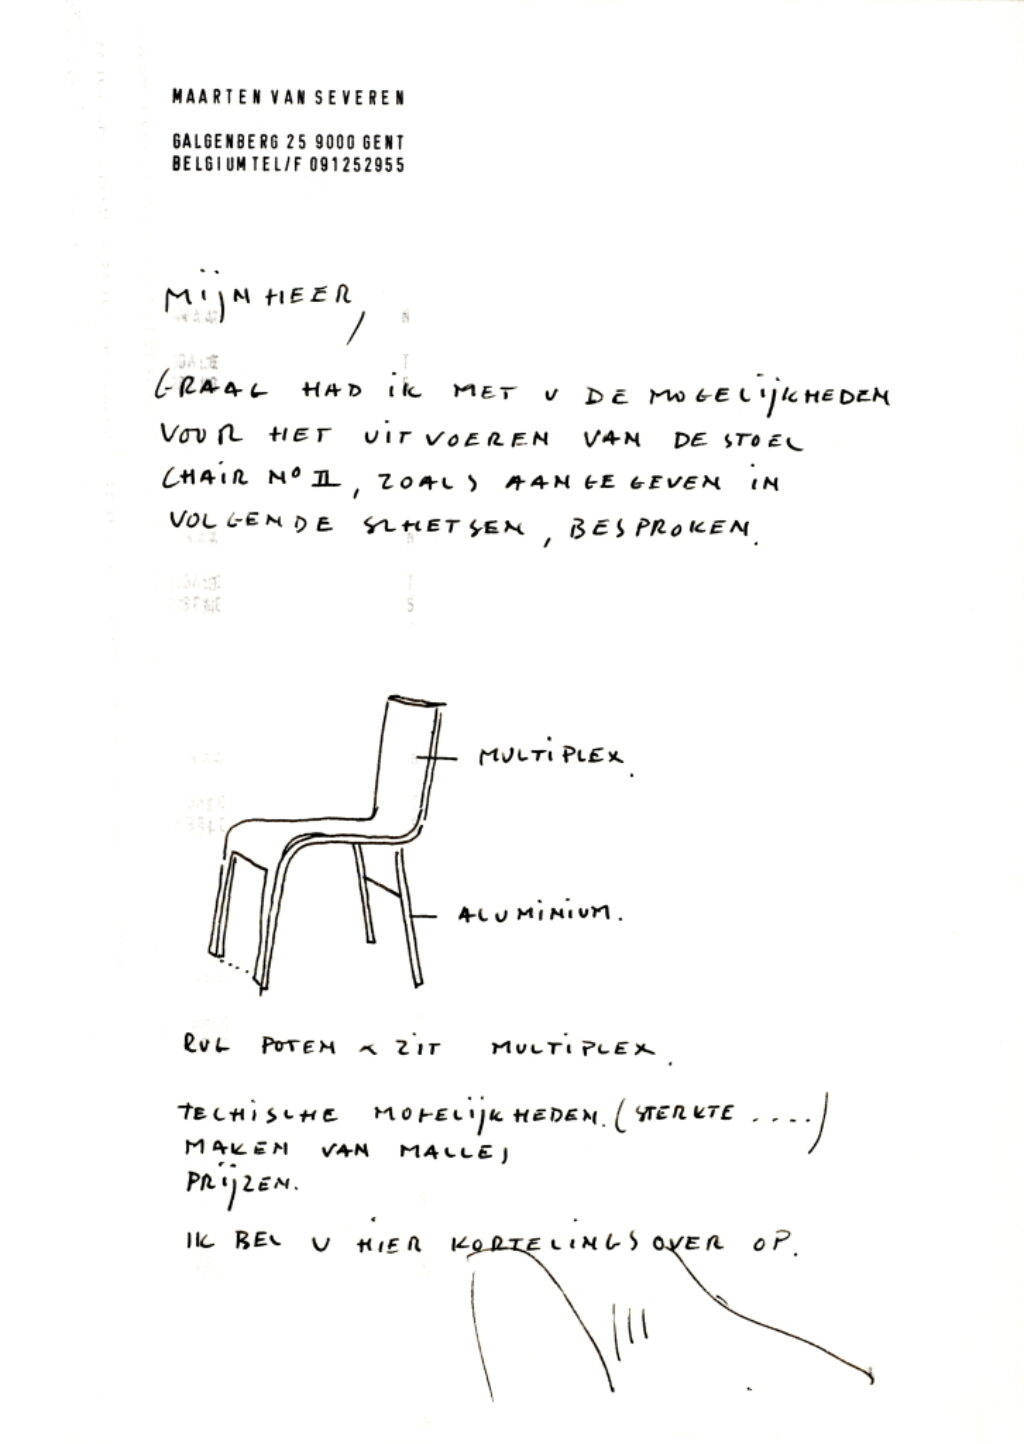 MAARTEN VAN SEVEREN
GALGENBERG 25 9000 GENT
BELGIUM TEL/F 091252955
MIJNHEER,
GRAAG HAD IK MET U DE MOGELIJKHEDEN
VOOR HET UITVOEREN VAN DE STOEL
CHAIR Nº II, ZOALS AANGEGEVEN IN
VOLGENDE SCHETSEN, BESPROKEN.
MULTIPLEX.
ALUMINIUM.
RUG POTEN & ZIT MULTIPLEX.
TECHISCHE MOGELIJKHEDEN. (STERKTE ....)
MAKEN VAN MALLEN
PRIJZEN.
IK BEL U HIER KORTELINGS OVER OP.